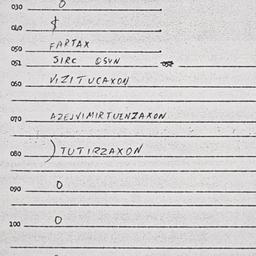 030 0
040 $
050 FARTAX
051 SIRC OSUN 052
060 VIZITUCAXON
070 AZEJVIMIRTUENZAXON
080 ) TUTIRZAXON
090 0
100 0